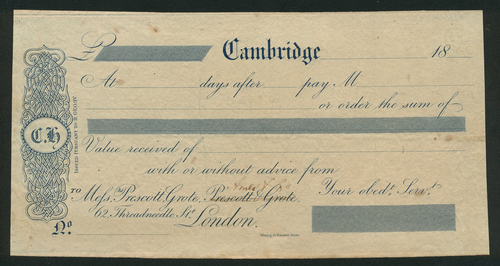 £ Cambridge 18
At days after pay M
or order the sum of
C.H
ISSUED PURSUANT TO
Value received of
with or without advice from
TO Messrs. Prescott, Grote, Prescott & Grote, Your obedt. Servt.
62 Threadneedle St. London.
No.